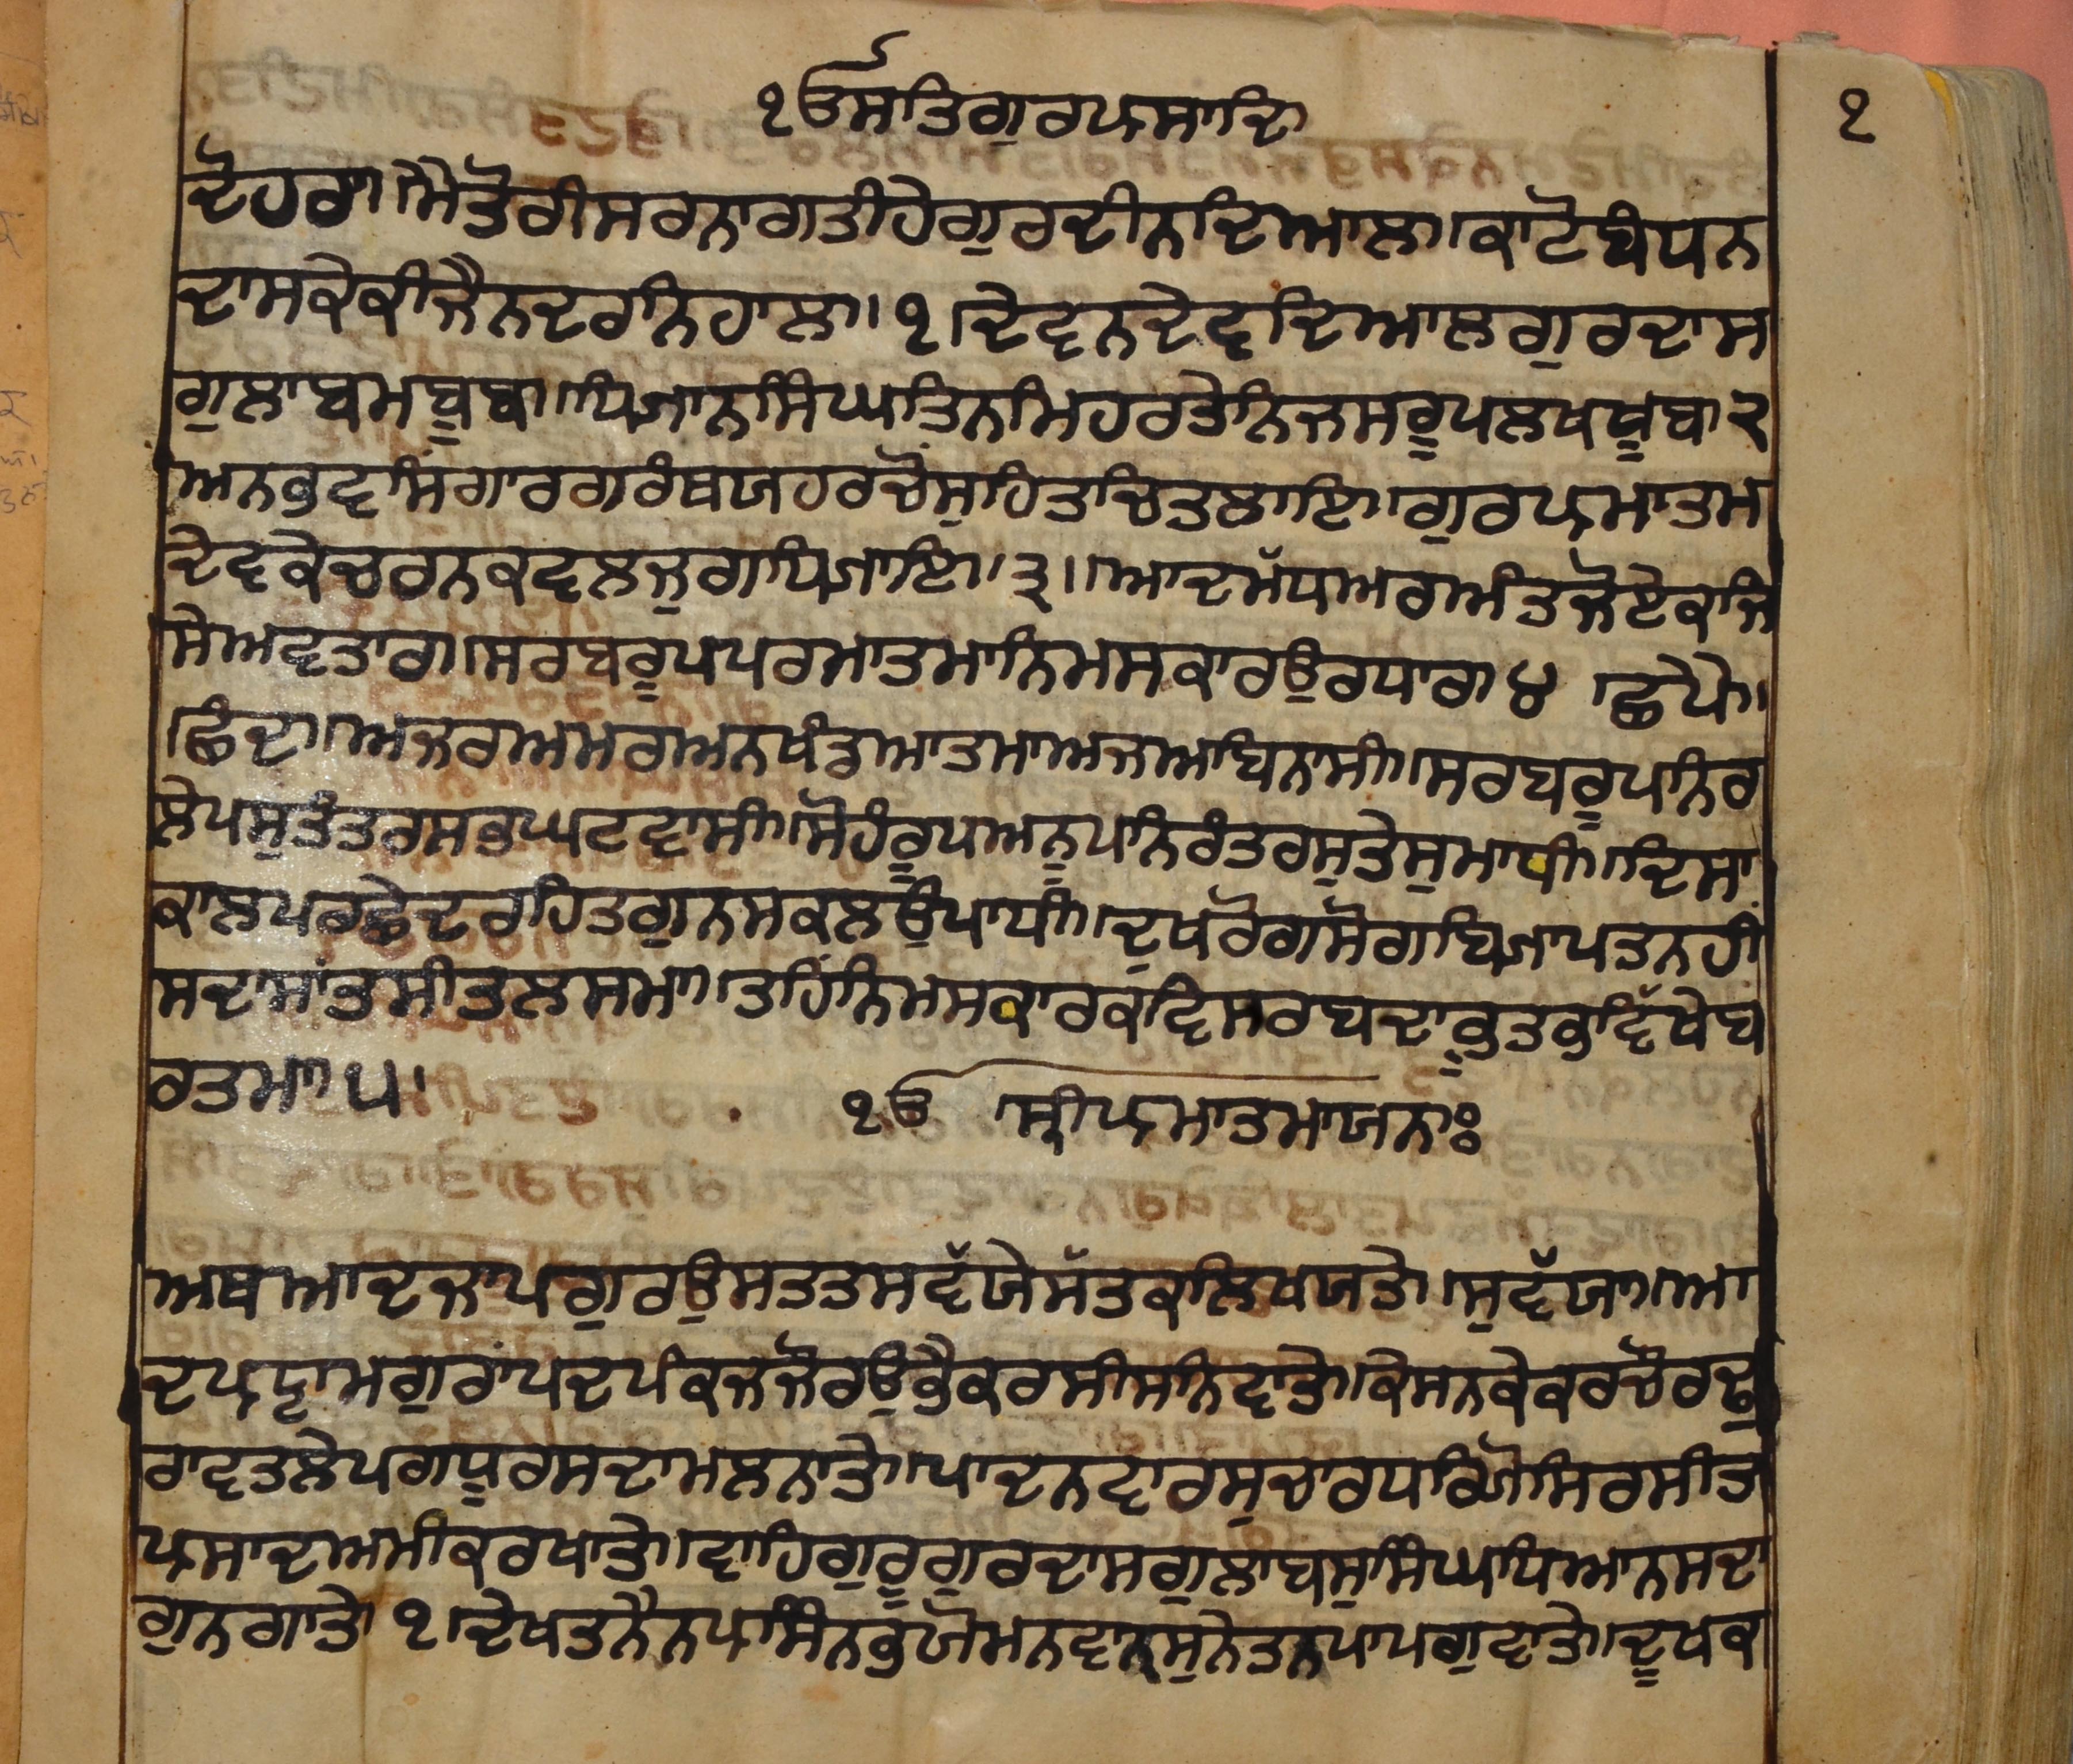 ੧ਓ ਸਤਿਗੁਰਪ੍ਰਸਾਦਿ
੧
ਦੋਹਰਾ॥ਮੈਤੋਰੀਸਰਨਾਗਤੀਹੇਗੁਰਦੀਨਦਿਆਲ॥ਕਾਟੋਬੰਧਨ
ਦਾਸਕੇਕੀਜੈਨਦਰਨਿਹਾਲ॥੧।ਦੇਵਨਦੇਵਦਿਆਲਗੁਰਦਾਸ
ਗੁਲਾਬਮਬੂਬ॥ਧਿਆਨਸਿੰਘਤਿਨਮਿਹਰਤੇਨਿਜਸਰੂਪਲਖਖੂਬ॥੨
ਅਨਭੁਵਸਿੰਗਾਰਗਰੰਥਯਹਰਚੋਸੁਹਿਤਚਿਤਲਾਇ॥ਗੁਰਪ੍ਰਮਾਤਮ
ਦੇਵਕੇਚਰਨਕਵਲਜੁਗਧਿਆਇ॥੩॥ਆਦਮੱਧਅਰਅੰਤਜੋਏਕਜਿ
ਸੈਅਵਤਾਰ॥ਸਰਬਰੂਪਪਰਮਾਤਮਾਨਿਮਸਕਾਰਉਰਧਾਰ॥੪ ।ਛਪੈ।
।ਛੰਦ॥ਅਜਰਅਮਰਅਨਖੰਡਆਤਮਾਅਜਅਬਿਨਾਸੀ॥ਸਰਬਰੂਪਨਿਰ
ਲੇਪਸੁਤੰਤਰਸਭਘਟਵਾਸੀ॥ਸੋਹੰਰੂਪਅਨੂਪਨਿਰੰਤਰਸੁਤੇਸੁਮਾਧੀ॥ਦਿਸਾ
ਕਾਲਪਰਛੇਦਰਹਿਤਗੁਨਸਕਲਉਪਾਧੀ॥ਦੁਖਰੋਗਸੋਗਬਿਆਪਤਨਹੀਂ
ਸਦਾਸਾਂਤਸੀਤਲਸਮ॥ਤਹਿੰਨਿਮਸਕਾਰਕਵਿਸਰਬਦਾਭੂਤਭਵਿੱਖੇਬ
ਰਤਮ॥੫।
੧ਓ ਸ੍ਰੀਪ੍ਰਮਾਤਮਾਯਨਃ
ਅਥਆਦਜਾਪਗੁਰਉਸਤਤਸਵੱਯੇਸੱਤਕਲਿਖਯਤੇ॥ਸੁਵੱਯਾ॥ਆ
ਦਪ੍ਰਣਾਮਗੁਰਾਂਪਦਪੰਕਜਜੋਰਉਭੈਕਰਸੀਸਨਿਵਾਤੇ॥ਕੇਸਨਕੇਕਰਚੌਰਢੁ
ਰਾਵਤਲੇਪਗਧੂਰਸਦਾਮਲਨਾਤੇ॥ਪਾਦਨਵਾਰਸੁਚਾਰਧਰਿਯੋਸਿਰਸੀਤ
ਪ੍ਰਸਾਦਅਮੀਕਰਖਾਤੇ॥ਵਾਹਿਗੁਰੂਗੁਰਦਾਸਗੁਲਾਬਸੁਸਿੰਘਧਿਆਨਸਦਾ
ਗੁਨਗਾਤੇ ੧।ਦੇਖਤਨੈਨਪ੍ਰਸਿੰਨਭਯੋਮਨਵਾਕਸੁਨੇਤਨਪਾਪਗੁਵਾਤੇ॥ਦੂਖਕ